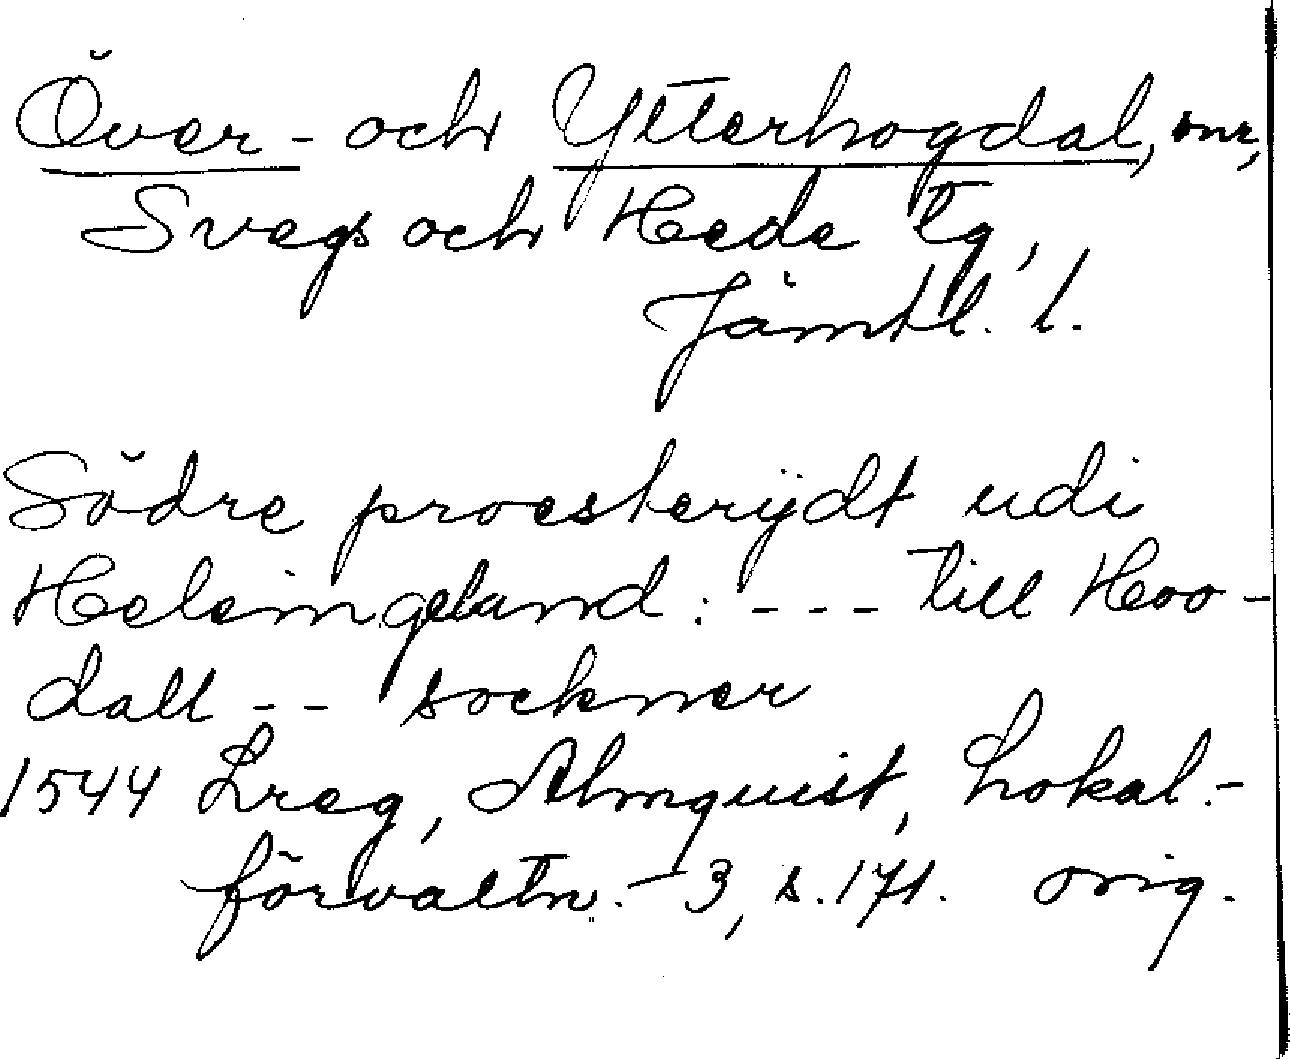 Över- och Ytterhogdal, snr,
Svegs och Hede tg,
Jämtl. l.
Södre proesterijdt udi
Helsingeland: --- till Hoo-
dall -- sockner
1544 Lreg, Almquist, Lokal.-
förvaltn. - 3, s. 171. orig.